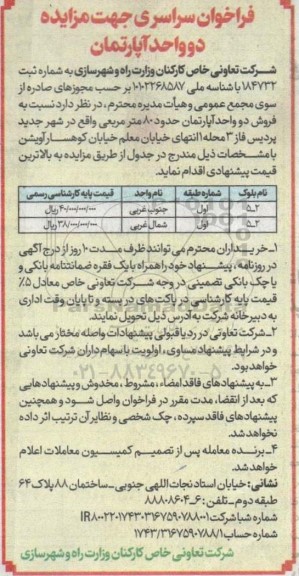 فراخوان سراسری جهت مزایده
دو واحد آپارتمان
شرکت تعاونی خاص کارکنان وزارت راه و شهرسازی به شماره ثبت
۱۸۴۷۳۲ با شناسه ملی ۱۰۱۰۲۲۶۸۵۸۷ بر حسب مجوزهای صادره از
سوی مجمع عمومی و هیأت مدیره محترم، در نظر دارد نسبت به
فروش دو واحد آپارتمان حدود ۸۰ متر مربعی واقع در شهر جدید
پردیس فاز ۳ محله ۱ انتهای خیابان معلم خیابان کوهسار آویشن
با مشخصات ذیل مندرج در جدول از طریق مزایده به بالاترین
قیمت پیشنهادی اقدام نماید.
نام بلوک شماره طبقه نام واحد قیمت پایه کارشناسی رسمی
۵_۲ اول جنوب غربی ۴۰/۰۰۰/۰۰۰/۰۰۰ ریال
۵_۲ اول شمال غربی ۳۸/۰۰۰/۰۰۰/۰۰۰ ریال
۱_ خریداران محترم می توانند ظرف مدت ۱۰ روز از درج آگهی
در روزنامه، پیشنهاد خود را همراه با یک فقره ضمانتنامه بانکی و
یا چک بانکی تضمینی در وجه شرکت تعاونی خاص معادل ۵٪
قیمت پایه کارشناسی در پاکت های در بسته و تا پایان وقت اداری
به دبیرخانه شرکت به آدرس ذیل تحویل نمایند.
۲_ شرکت تعاونی در رد یا قبولی پیشنهادات واصله مختار می باشد
و در شرایط پیشنهاد مساوی، اولویت با سهام داران شرکت تعاونی
خواهد بود.
۳_ به پیشنهادهای فاقد امضاء، مشروط، مخدوش و پیشنهادهایی
که بعد از انقضاء مدت مقرر در فراخوان واصل شود و همچنین
پیشنهادهای فاقد سپرده، چک شخصی و نظایر آن ترتیب اثر داده
نخواهد شد.
۴_ برنده معامله پس از تصمیم کمیسیون معاملات اعلام
خواهد شد.
نشانی: خیابان استاد نجات اللهی جنوبی_ ساختمان ۸۸ پلاک ۶۴
طبقه دوم_ تلفن: ۶_۸۸۸۰۸۶۰۴
شماره شبا شرکت IR۸۰۰۲۲۰۱۷۴۳۰۳۱۶۷۵۹۰۷۸۸۰۰۱
شماره حساب ۱۷۴۳/۳۱۶۷۵۹۰۷۸۸/۱
شرکت تعاونی خاص کارکنان وزارت راه و شهرسازی
۰۲۱-۸۸۳۴۹۶۷۰-۵